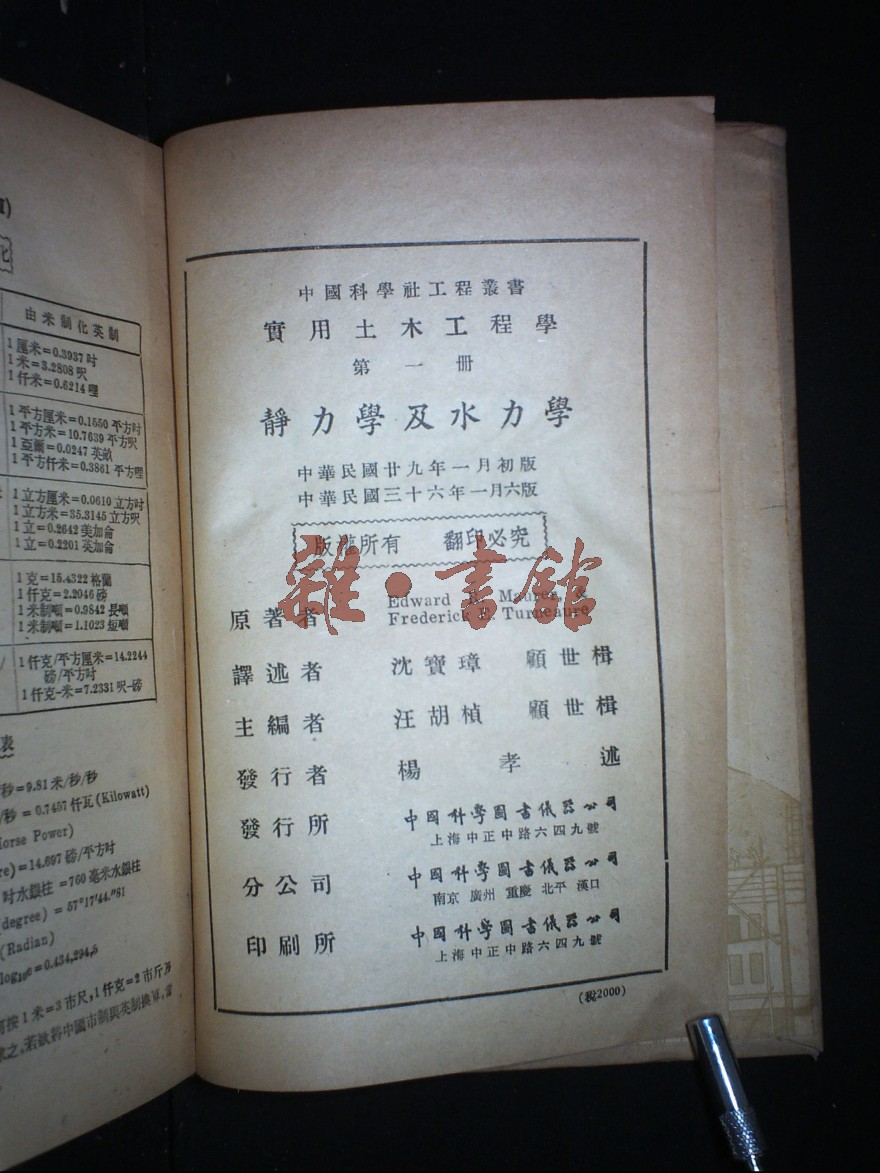 化
由米制化英制
1厘米=0.3937吋
1米=3.2808呎
1仟米=0.6214哩
1平方厘米=0.1550平方吋
1平方米=10.7639平方呎
1亞爾=0.0247英畝
1平方仟米=0.3861平方哩
1立方厘米=0.0610立方吋
1立方米=35.3145立方呎
1立=0.2642美加侖
1立=0.2201英加侖
1克=15.4322格蘭
1仟克=2.2046磅
1米制噸=0.9842長噸
1米制噸=1.1023短噸
1仟克/平方厘米=14.2244
磅/平方吋
1仟克-米=7.2331呎-磅
表
秒=9.81米/秒/秒
/秒=0.7457仟瓦(Kilowatt)
orse Power)
re)=14.697磅/平方吋
吋水銀柱=760毫米水銀柱
degree)=57°17′44.″81
(Radian)
log₁₀e=0.434,294,5
按1米=3市尺,1仟克=2市斤
求之,若欲將中國市制與英制換算,當
中國科學社工程叢書
實用土木工程學
第一册
靜力學及水力學
中華民國廿九年一月初版
中華民國三十六年一月六版
版權所有 翻印必究
雜·書館
原著者 Edward R. Maurer &
Frederick E. Turneaure
譯述者 沈寶璋 顧世楫
主編者 汪胡楨 顧世楫
發行者 楊孝述
發行所 中國科學圖書儀器公司
上海中正中路六四九號
分公司 中國科學圖書儀器公司
南京 廣州 重慶 北平 漢口
印刷所 中國科學圖書儀器公司
上海中正中路六四九號
(稅2000)